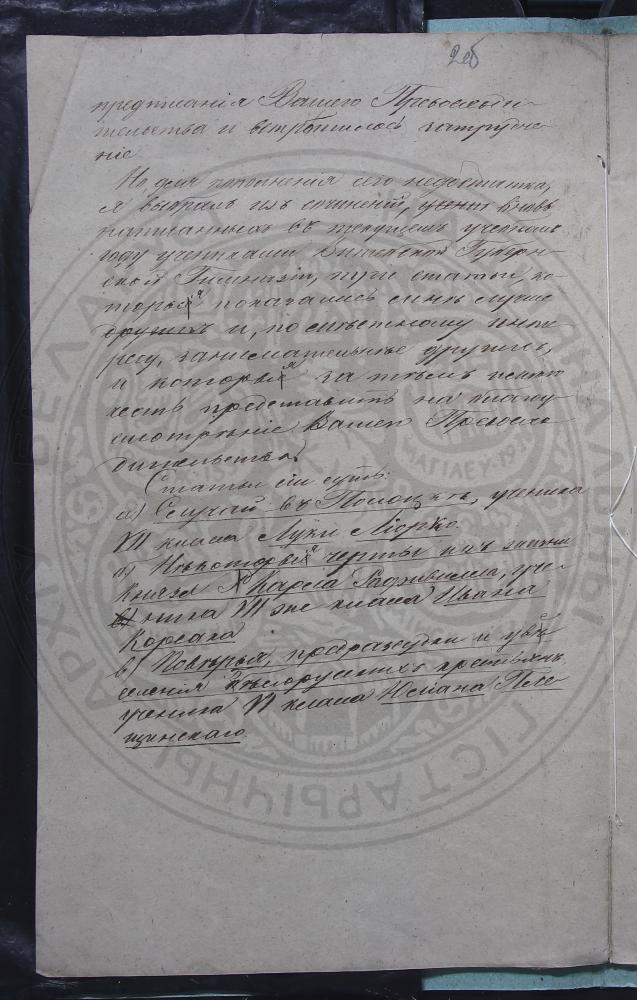 2об
предписанія Вашего Превосходи-
тельства и встрѣтилось затрудне-
ніе.
Но для пополненія сего недостатка,
я выбралъ изъ сочиненій, вновь
написанныхъ въ текущемъ учебномъ
году учениками Витебской Губерн-
ской Гимназіи, три статьи, ко-
торыя показались мнѣ лучше
другихъ и, по мѣстному инте-
ресу, занимательнѣе другихъ,
и которыя за тѣмъ имѣю
честь представить на благоу-
смотрѣніе Вашего Превосхо-
дительства.
Статьи сіи суть:
а) Случай въ Полоцкѣ, ученика
VII класса Луки
б) Нѣкоторыя черты изъ жизни
Князя Карла Радзивилла, уче-
ника VI же класса Ивана
Корсака
в) Повѣрья, предразсудки и увѣ-
селенія Бѣлорусскихъ крестьянъ,
ученика VI класса Юліана Пле-
щинскаго.
АРХІЎ БЕЛАРУСІ
ГІСТАРЫЧНЫ
МАГІЛЕЎ